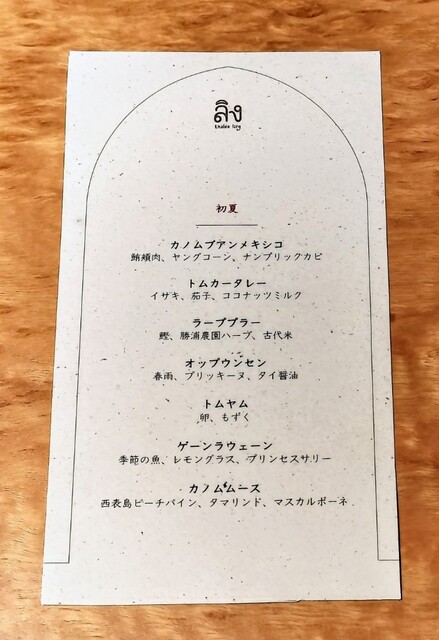 ลิง
thalee ling
初夏
カノムブアンメキシコ
鮪頬肉、ヤングコーン、ナンプリックカピ
トムカータレー
イサキ、茄子、ココナッツミルク
ラーブプラー
鰹、勝浦農園ハーブ、古代米
オップウンセン
春雨、プリッキーヌ、タイ醤油
トムヤム
卵、もずく
ゲーンラウェーン
季節の魚、レモングラス、プリンセスサリー
カノムムース
西表島ピーチパイン、タマリンド、マスカルポーネ